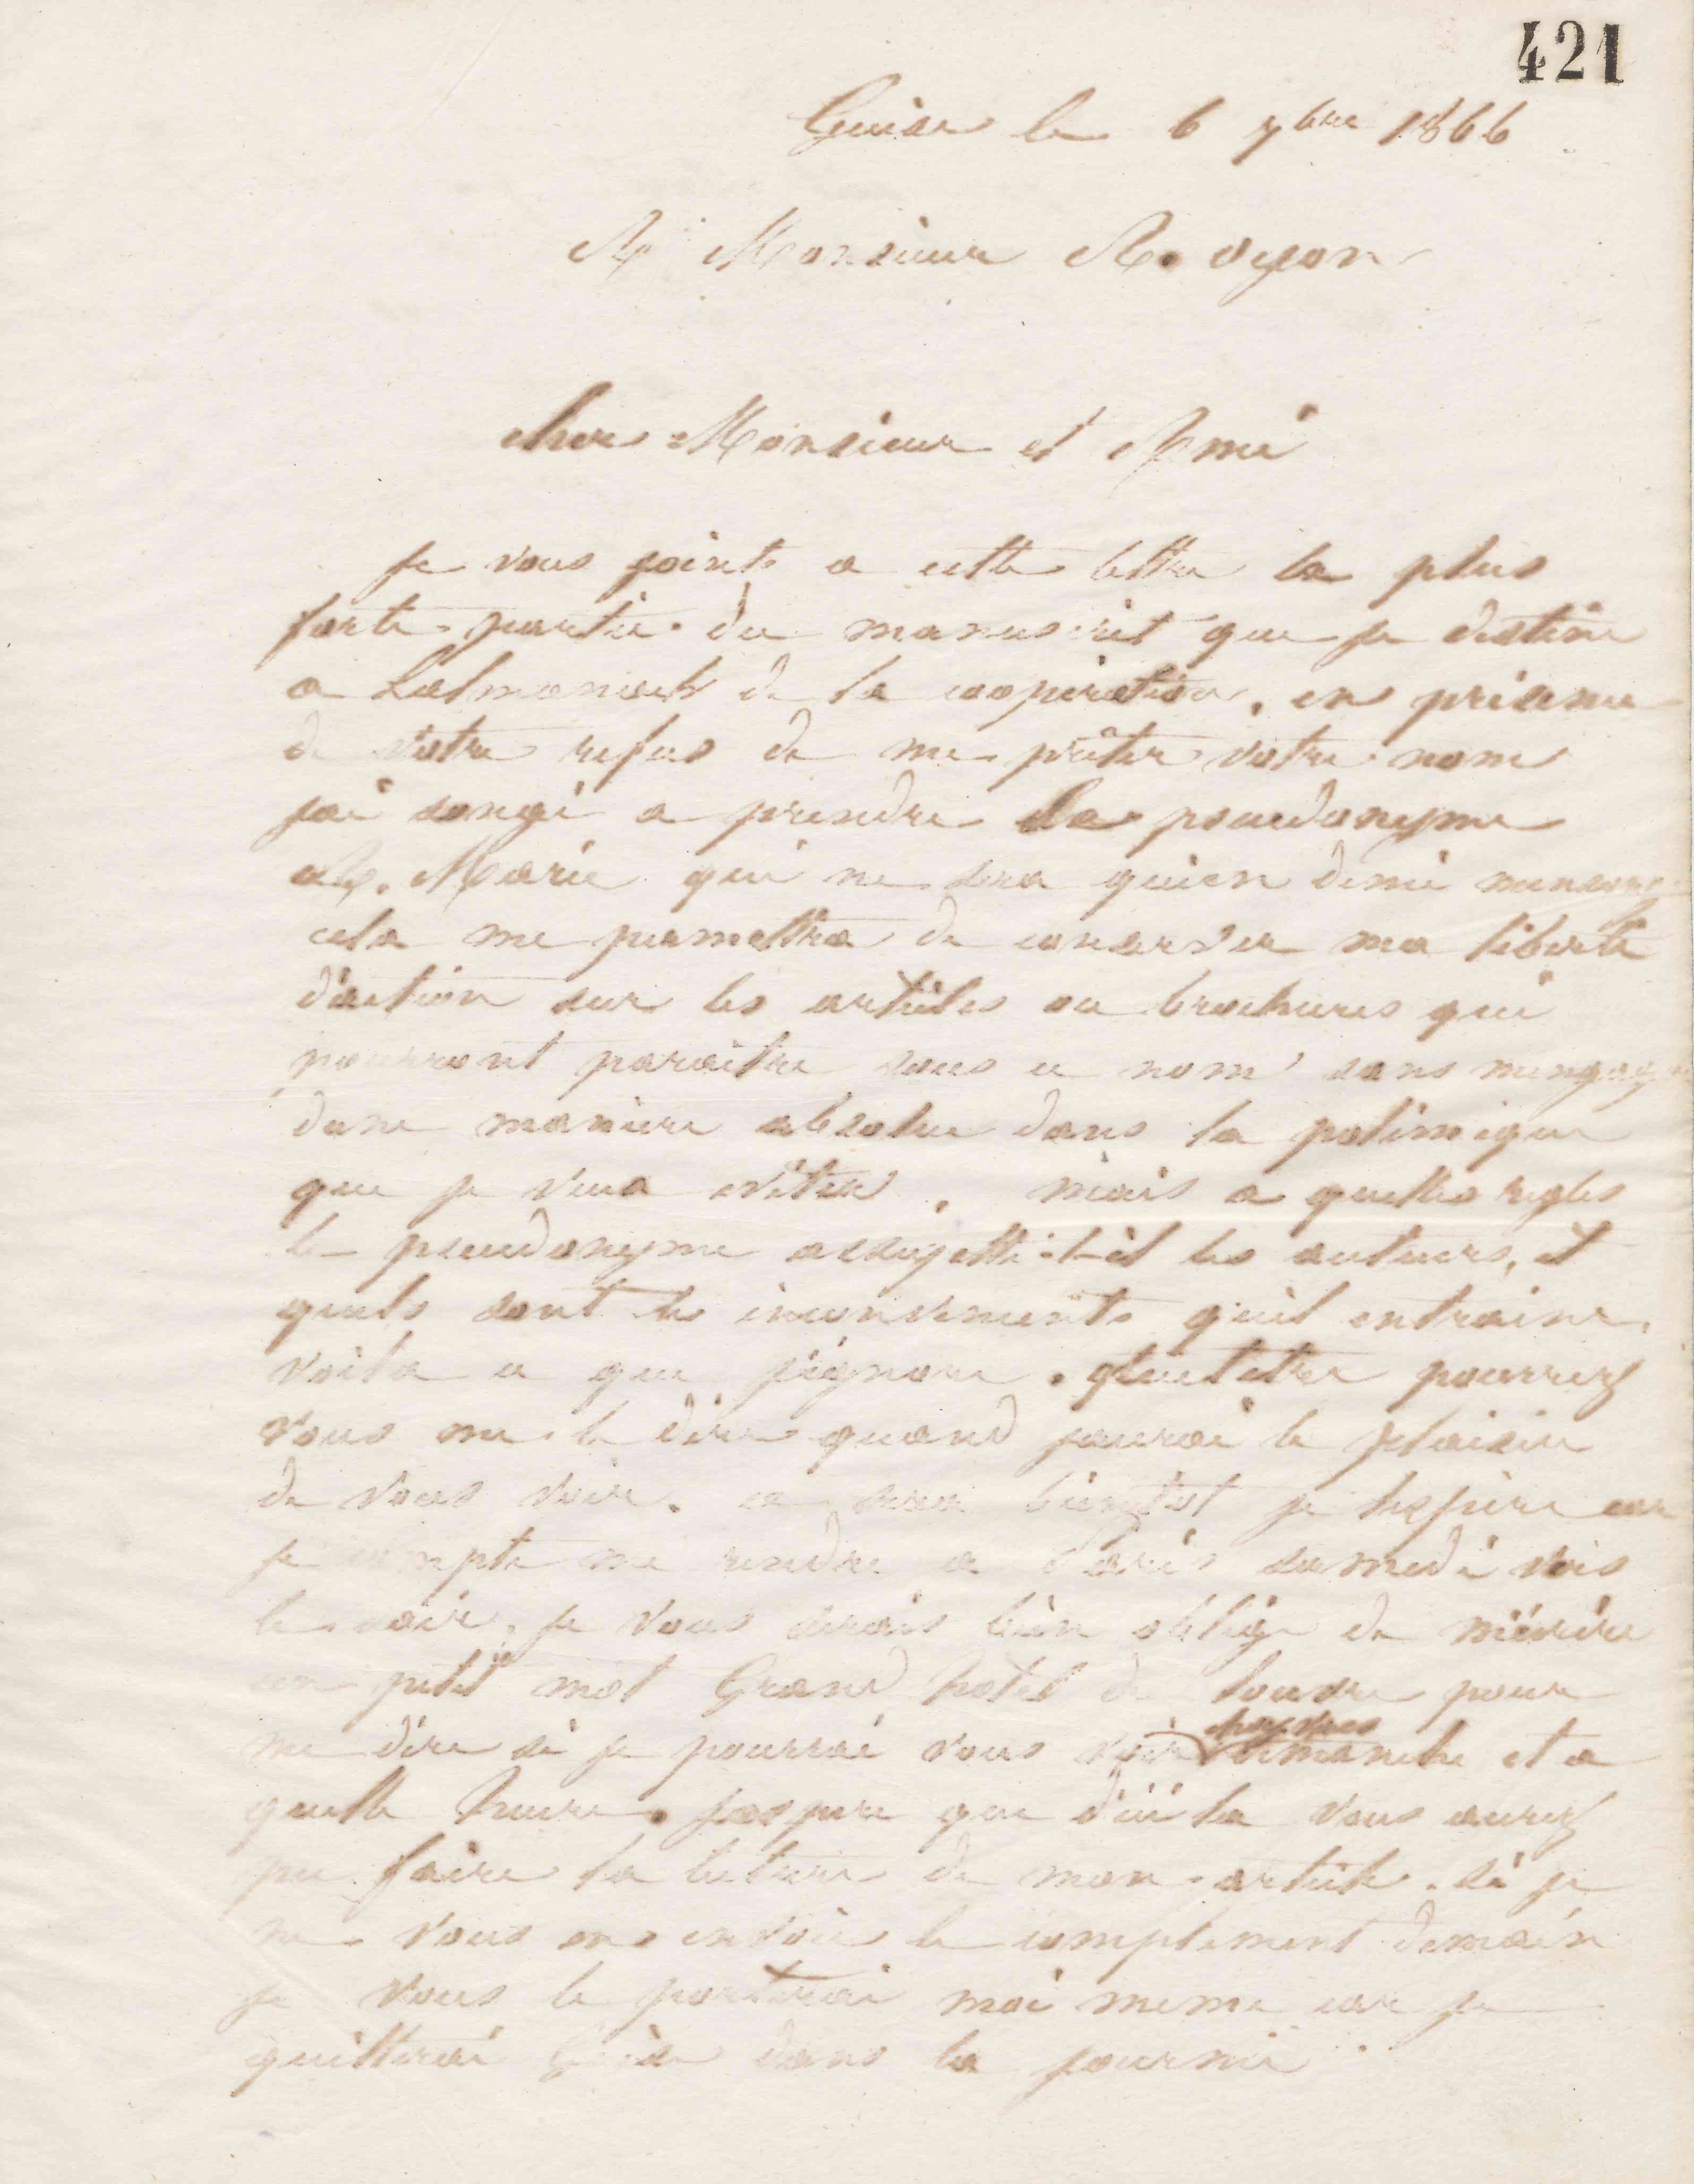 421
Guise le 6 7bre 1866
A Monsieur A. oyon
cher Monsieur et Ami
Je vous joints a cette lettre la plus
forte partie du manuscrit que je destine
a Lalmanach de la coopération, en présence
de votre refus de me prêter votre nom
jai songé a prendre le pseudonyme
Marie qui ne sera quien demi mensonge
cela me permettra de conserver ma liberté
d'action sur les articles ou brochures qui
pourront paraitre sous ce nom sans mengager
dune manière absolue dans la polimique
que je veux eviter, mais a quelles regles
le pseudonyme assujetti-t-il les auteurs, et
quels sont les inconvenients quil entraine,
voila ce que j'ignore. Peutetre pourrez
vous me le dire quand jaurai le plaisir
de vous voir. ce sera bientot je lespère car
je compte me rendre a Paris samedi vers
le soir, je vous serais bien obligé de m'écrire
un petit mot Grand hotel du louvre pour
me dire si je pourrai vous voir chez vous dimanche et a
quelle heure. jespere que d'ici la vous aurez
pu faire la lecture de mon article. si je
ne vous en envoie le complement demain
je vous le porterai moi meme car je
quitterai Guise dans la journée